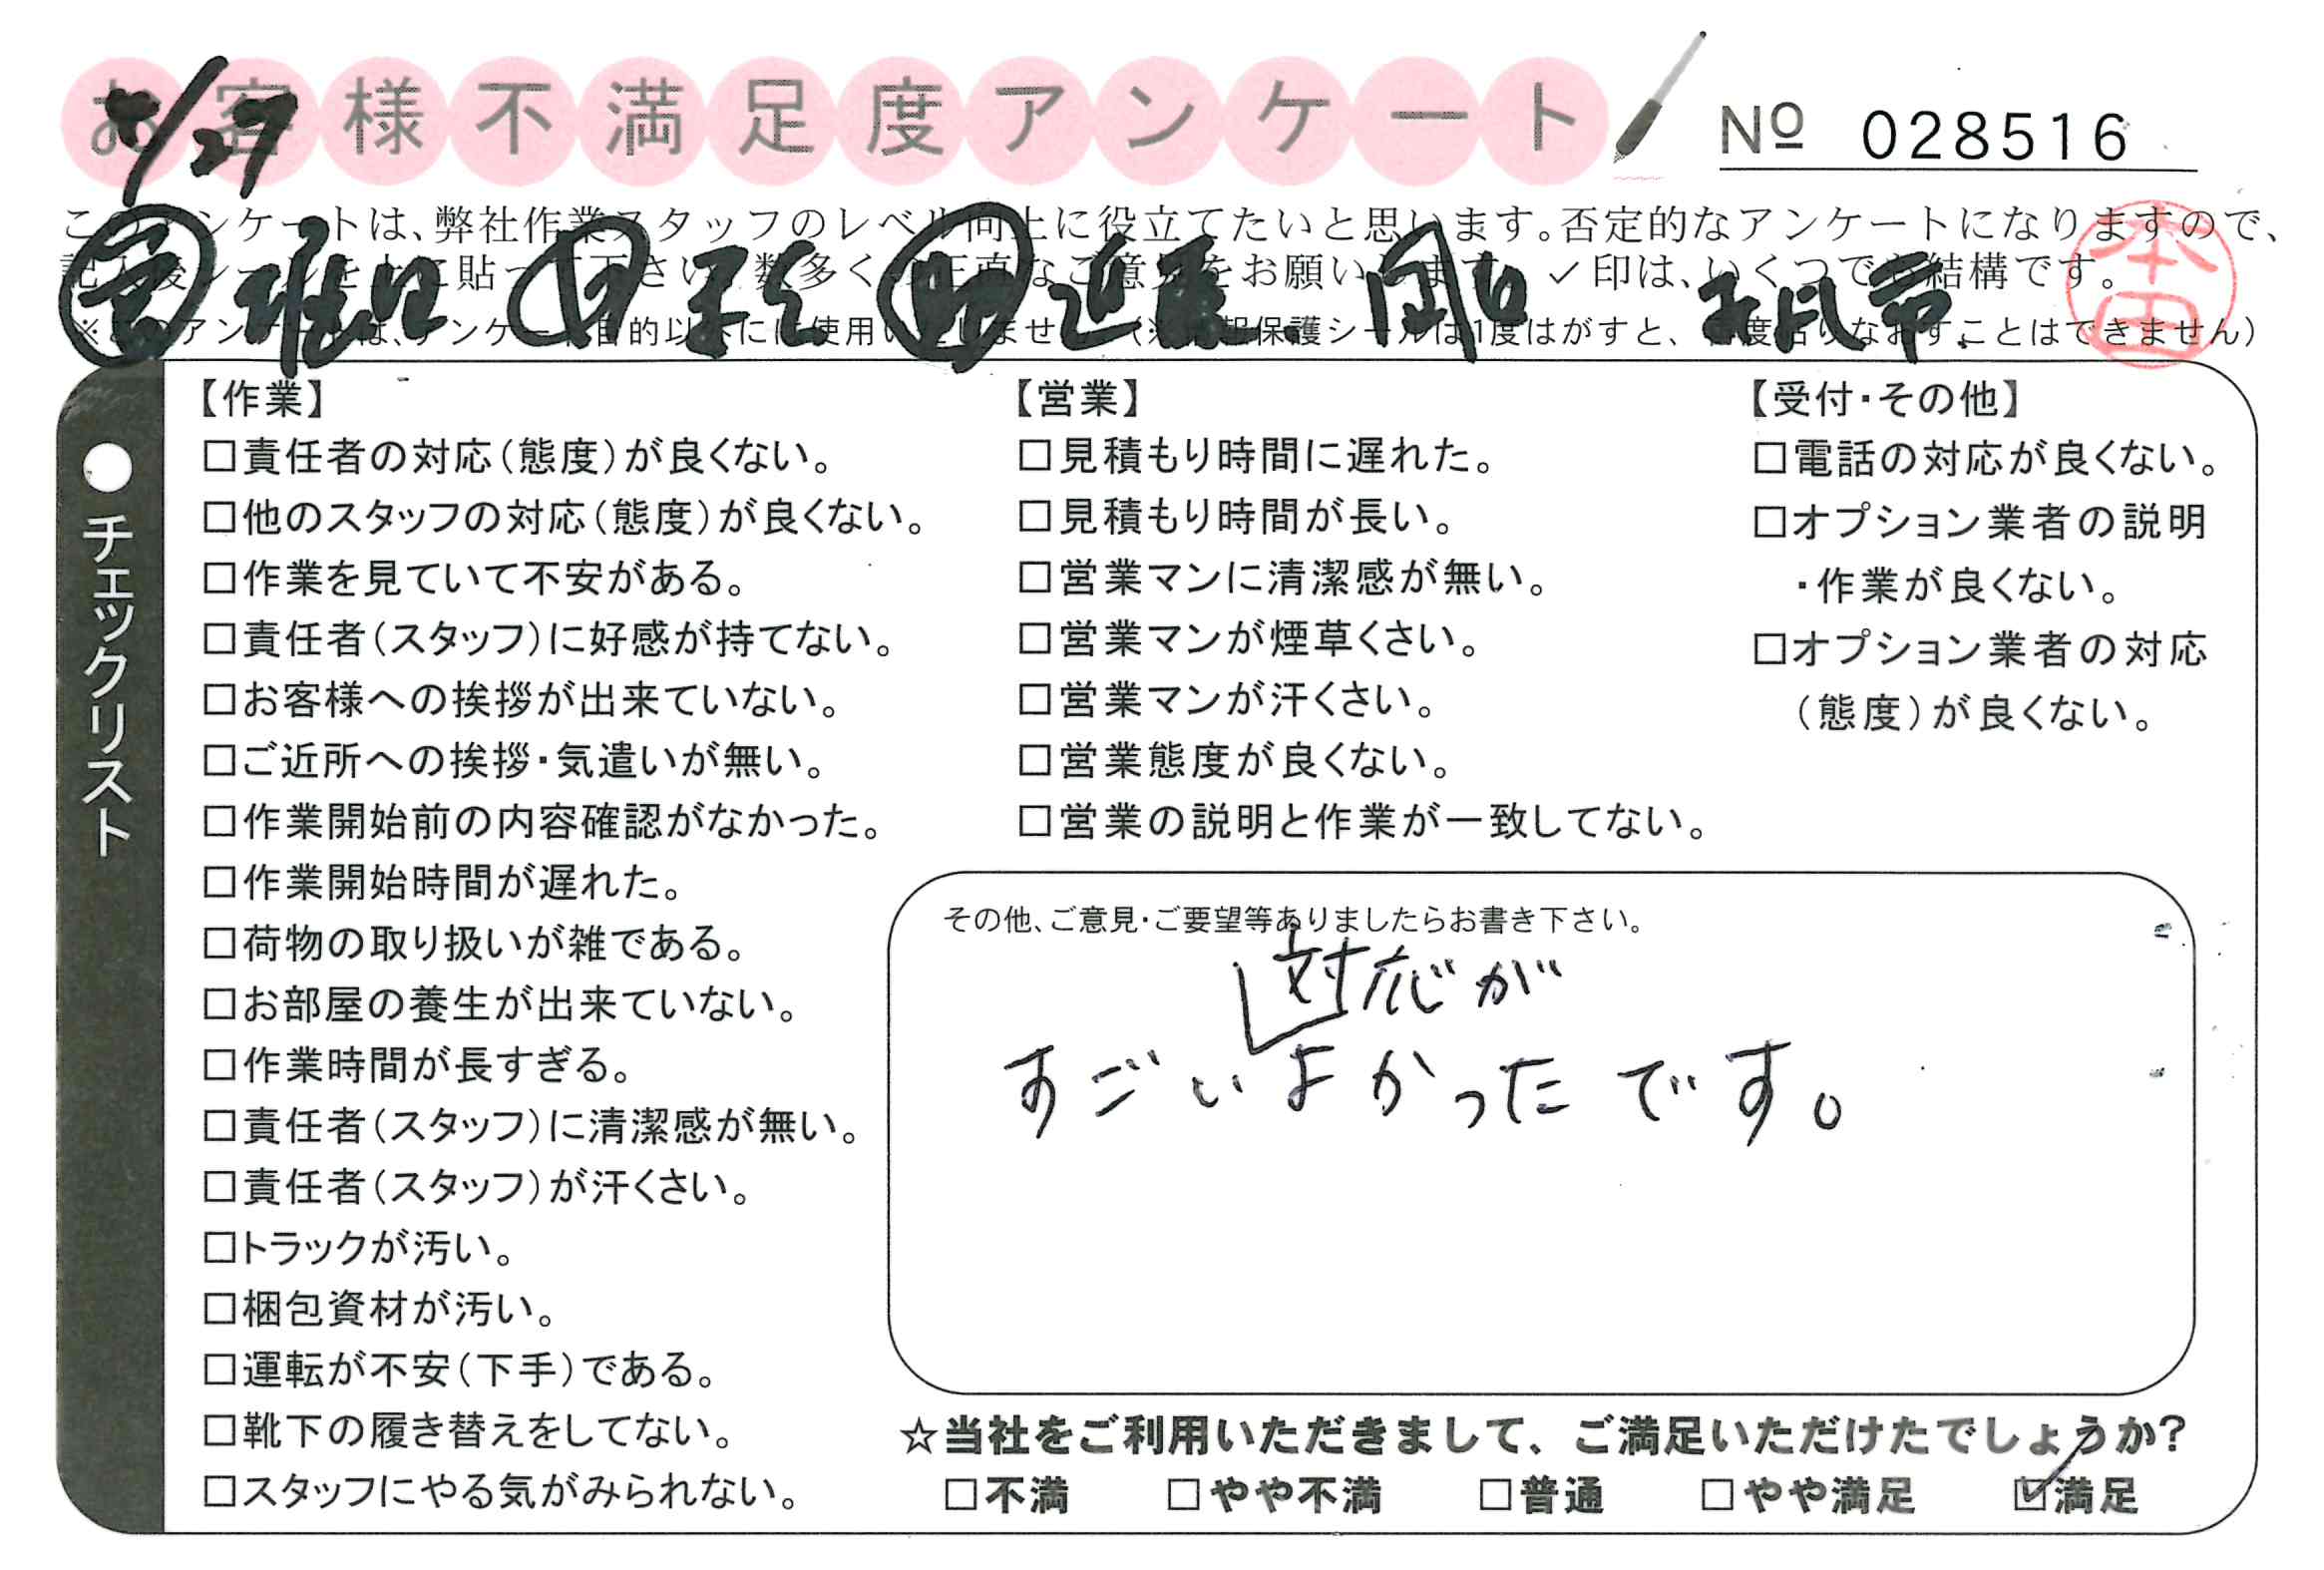 お客様不満足度アンケート
№ 028516
/27
このアンケートは、弊社作業スタッフのレベル向上に役立てたいと思います。否定的なアンケートになりますので、
記入後シールを上に貼って下さい。数多くの正直なご意見をお願いします。✓印は、いくつでも結構です。
※このアンケートは、アンケート目的以外には使用いたしません。(※情報保護シールは1度はがすと、再度貼りなおすことはできません)
営 堀口
本田
●チェックリスト
【作業】
□責任者の対応(態度)が良くない。
□他のスタッフの対応(態度)が良くない。
□作業を見ていて不安がある。
□責任者(スタッフ)に好感が持てない。
□お客様への挨拶が出来ていない。
□ご近所への挨拶・気遣いが無い。
□作業開始前の内容確認がなかった。
□作業開始時間が遅れた。
□荷物の取り扱いが雑である。
□お部屋の養生が出来ていない。
□作業時間が長すぎる。
□責任者(スタッフ)に清潔感が無い。
□責任者(スタッフ)が汗くさい。
□トラックが汚い。
□梱包資材が汚い。
□運転が不安(下手)である。
□靴下の履き替えをしてない。
□スタッフにやる気がみられない。
【営業】
□見積もり時間に遅れた。
□見積もり時間が長い。
□営業マンに清潔感が無い。
□営業マンが煙草くさい。
□営業マンが汗くさい。
□営業態度が良くない。
□営業の説明と作業が一致してない。
【受付・その他】
□電話の対応が良くない。
□オプション業者の説明
・作業が良くない。
□オプション業者の対応
(態度)が良くない。
その他、ご意見・ご要望等ありましたらお書き下さい。
対応が
すごいよかったです。
☆当社をご利用いただきまして、ご満足いただけたでしょうか?
□不満 □やや不満 □普通 □やや満足 ☑満足